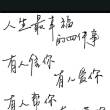 人生最幸福
的四件事
有人信你
有人爱你
有人帮你